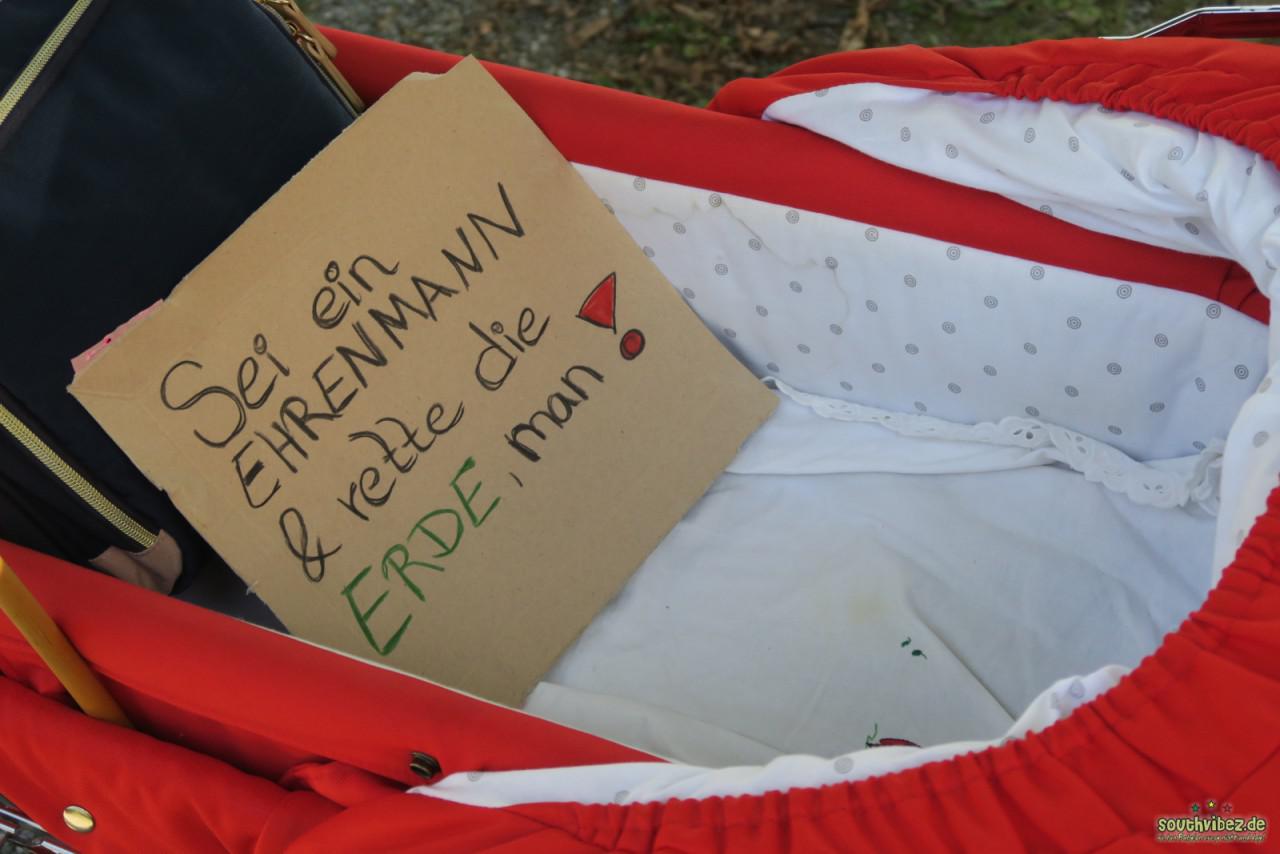 Sei ein
EHRENMANN
& rette die
ERDE, man!
southvibez.de